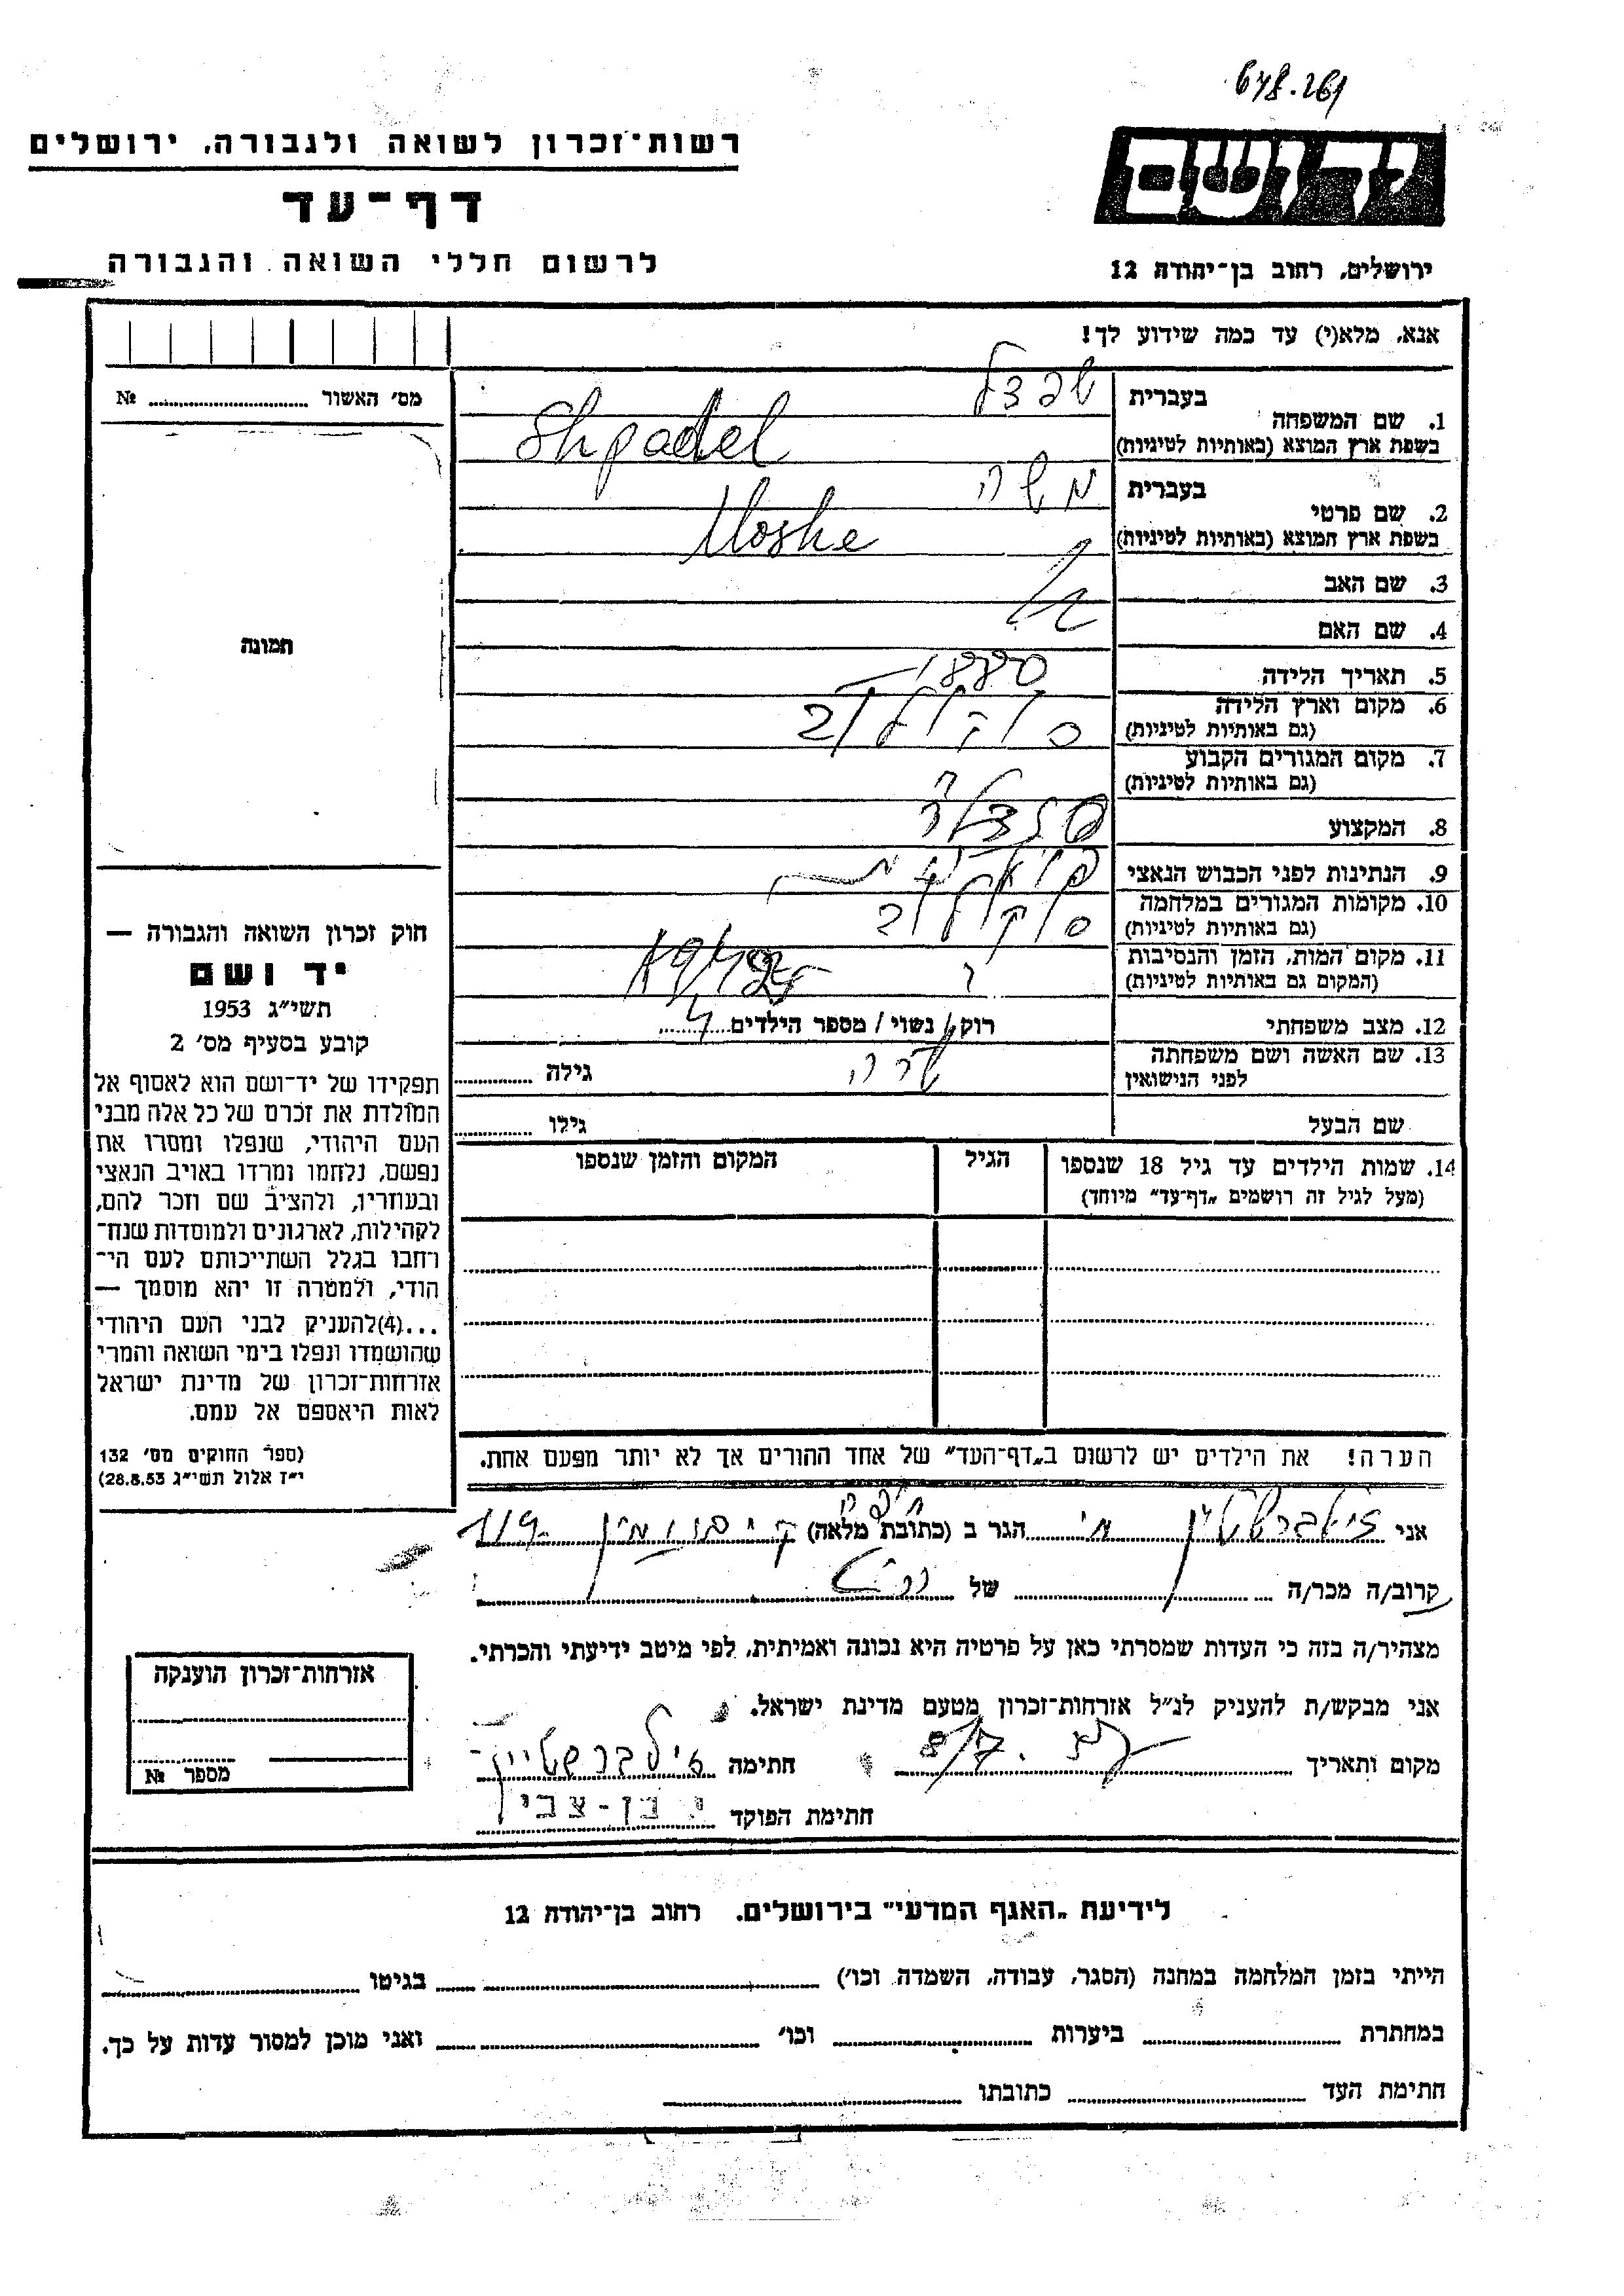 678.261
רשות־זכרון לשואה ולגבורה, ירושלים
יד ושם
דף־עד
לרשום חללי השואה והגבורה
ירושלים, רחוב בן־יהודה 12
אנא, מלא(י) עד כמה שידוע לך!
מס׳ האשור № ........
בעברית
1. שם המשפחה
בשפת ארץ המוצא (באותיות לטיניות) Shpadel
בעברית משה
2. שם פרטי
בשפת ארץ המוצא (באותיות לטיניות) Moshe
3. שם האב
4. שם האם
5. תאריך הלידה 1880
6. מקום וארץ הלידה
(גם באותיות לטיניות)
7. מקום המגורים הקבוע
(גם באותיות לטיניות)
8. המקצוע
9. הנתינות לפני הכבוש הנאצי
10. מקומות המגורים במלחמה
(גם באותיות לטיניות)
11. מקום המות, הזמן והנסיבות
(המקום גם באותיות לטיניות)
12. מצב משפחתי רוק/ נשוי/ מספר הילדים 4
13. שם האשה ושם משפחתה
לפני הנישואין שרה גילה ........
שם הבעל גילו ........
14. שמות הילדים עד גיל 18 שנספו הגיל המקום והזמן שנספו
(מעל לגיל זה רושמים „דף־עד״ מיוחד)
הערה! את הילדים יש לרשום ב„דף־העד״ של אחד ההורים אך לא יותר מפעם אחת.
תמונה
חוק זכרון השואה והגבורה —
יד ושם
תשי״ג 1953
קובע בסעיף מס׳ 2
תפקידו של יד־ושם הוא לאסוף אל
המולדת את זכרם של כל אלה מבני
העם היהודי, שנפלו ומסרו את
נפשם, נלחמו ומרדו באויב הנאצי
ובעוזריו, ולהציב שם וזכר להם,
לקהילות, לארגונים ולמוסדות שנח־
רחבו בגלל השתייכותם לעם הי־
הודי, ולמטרה זו יהא מוסמך —
...(4)להעניק לבני העם היהודי
שהושמדו ונפלו בימי השואה והמרי
אזרחות־זכרון של מדינת ישראל
לאות היאספם אל עמם.
(ספר החוקים מס׳ 132
י״ז אלול תשי״ג 28.8.53)
חיפה
אני זילברשטיין הגר ב (כתובת מלאה)
קרוב/ה מכר/ה של
מצהיר/ה בזה כי העדות שמסרתי כאן על פרטיה היא נכונה ואמיתית, לפי מיטב ידיעתי והכרתי.
אני מבקש/ת להעניק לנ״ל אזרחות־זכרון מטעם מדינת ישראל.
מקום ותאריך 8/7 חתימה זילברשטיין
חתימת הפוקד י. בן-צבי
אזרחות־זכרון הוענקה
מספר №
לידיעת „האגף המדעי״ בירושלים, רחוב בן־יהודה 12
הייתי בזמן המלחמה במחנה (הסגר, עבודה, השמדה וכו׳) בגיטו
במחתרת ביערות וכו׳ ואני מוכן למסור עדות על כך.
חתימת העד כתובתו